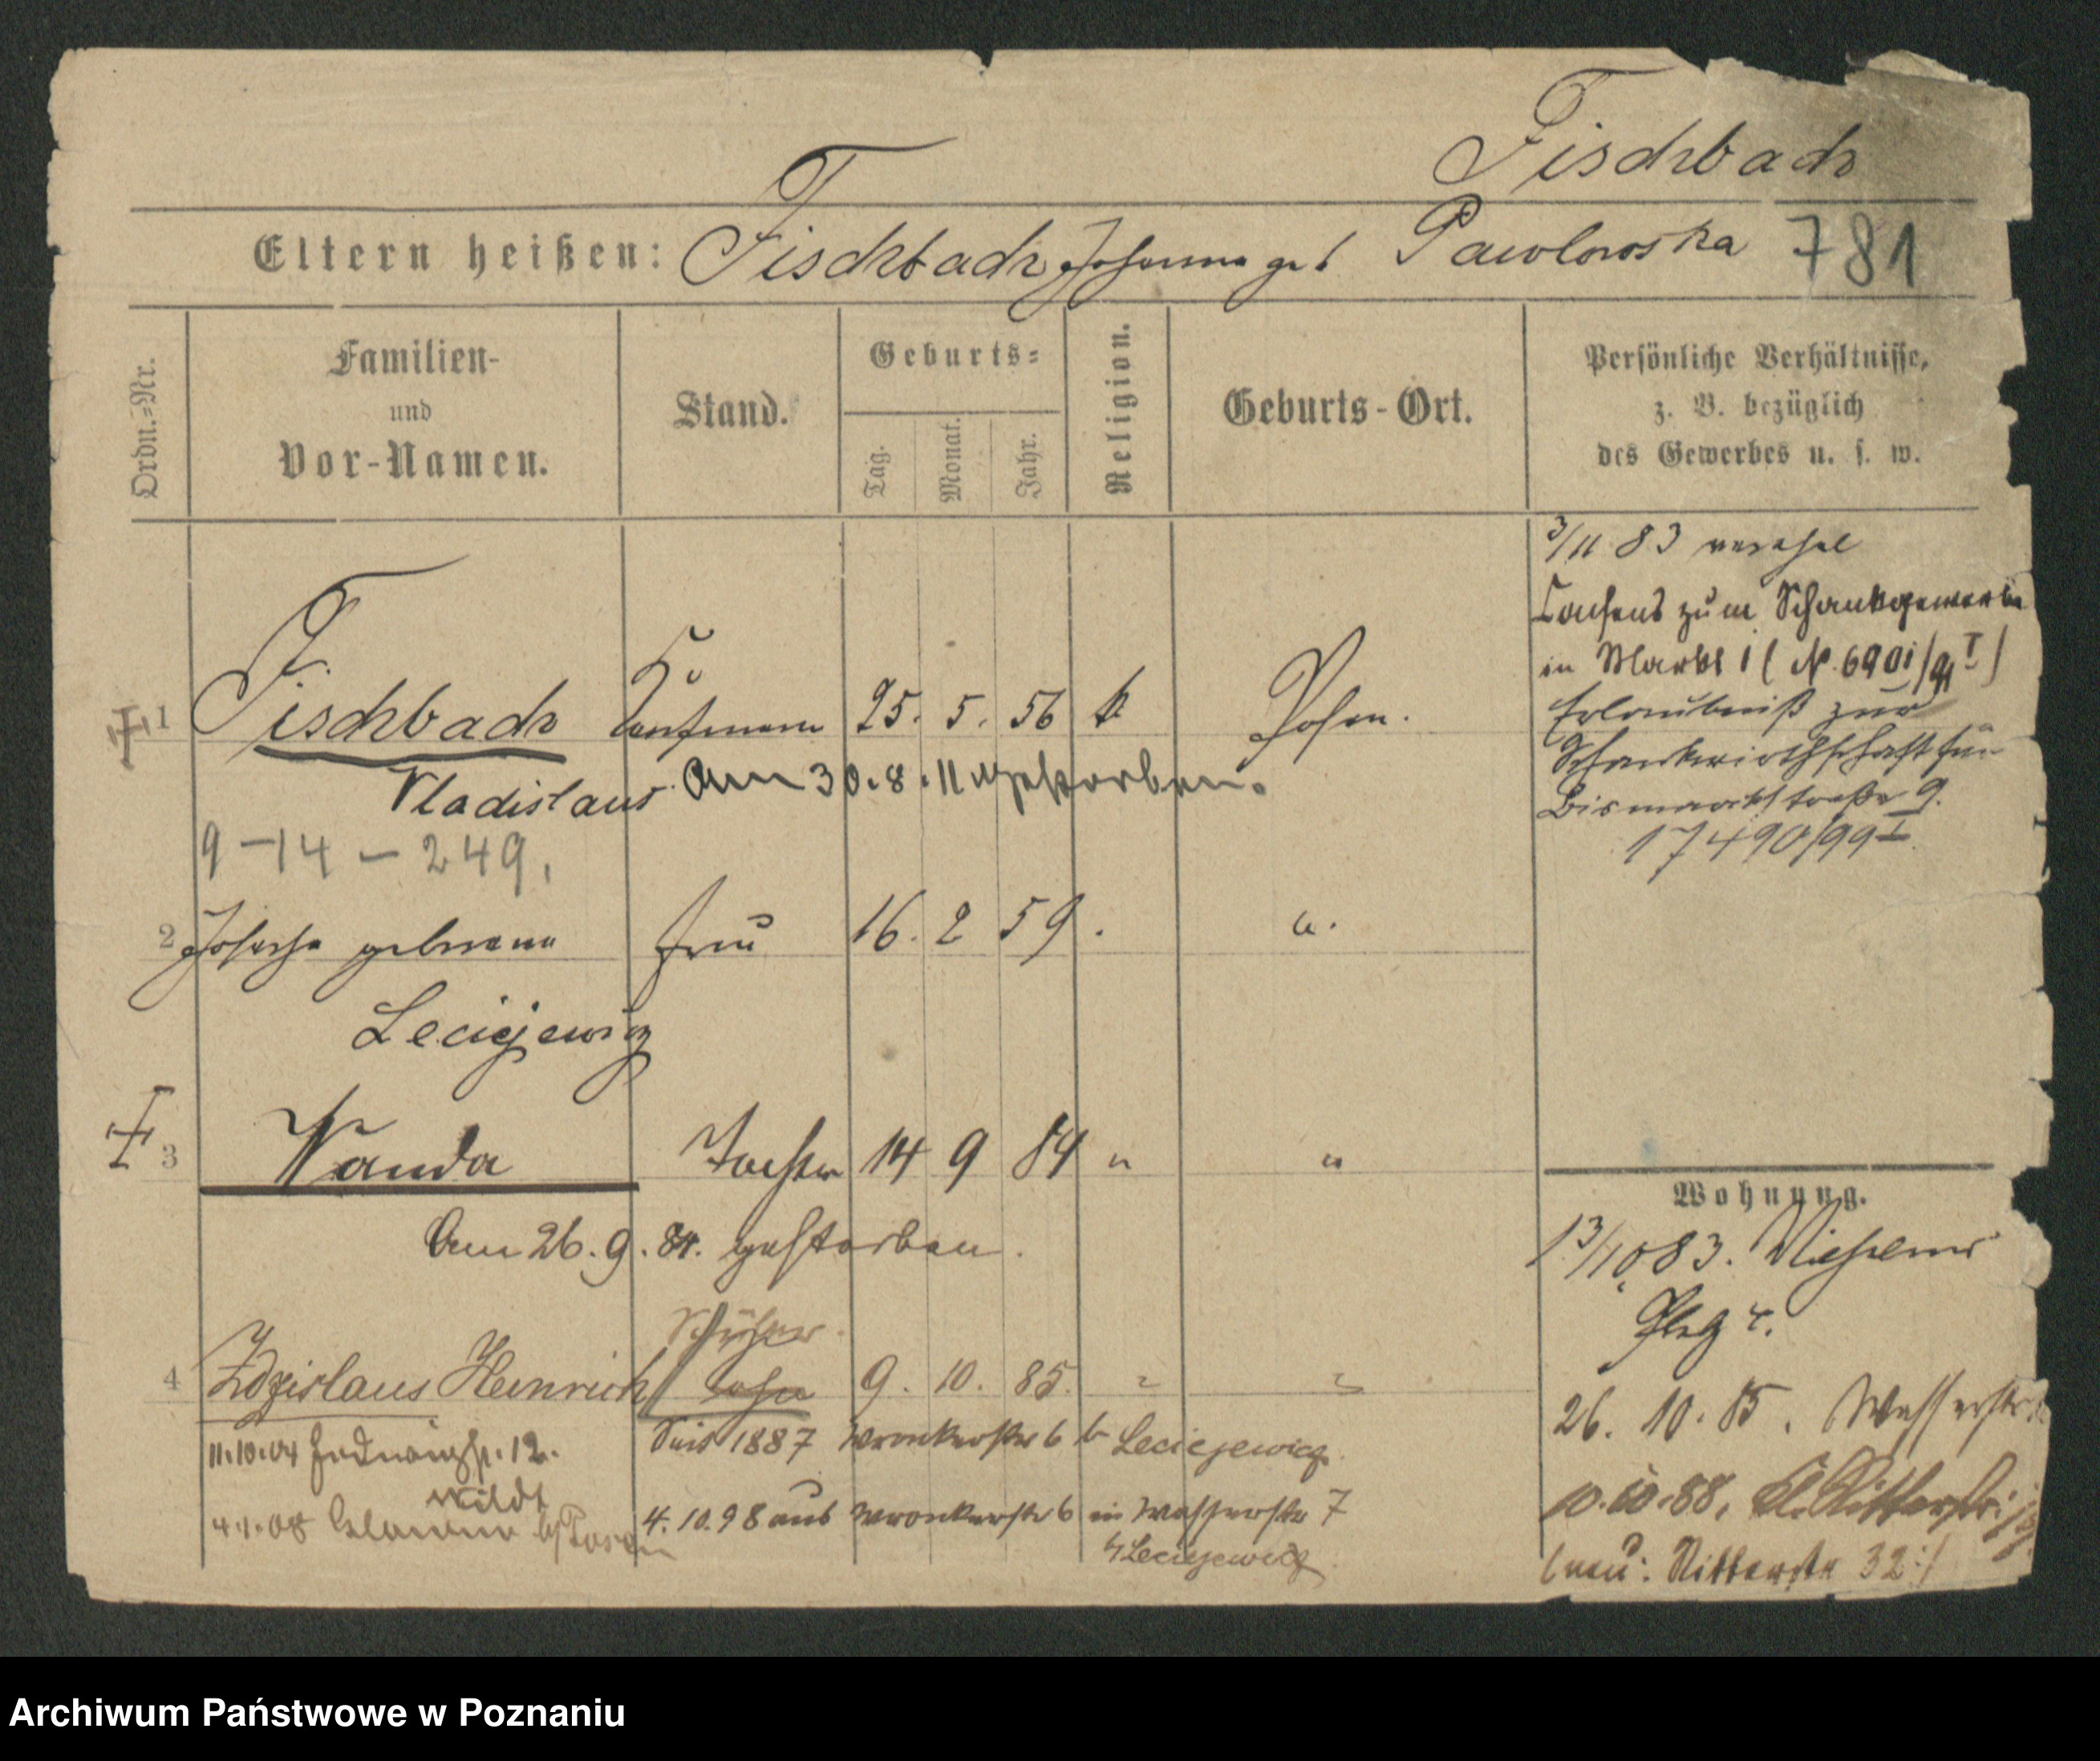 Fischbach
Eltern heißen: Fischbach Johanna geb Pawlowska 781
Ordn.-Nr.
Familien-
und
Vor-Namen.
Stand.
Geburts-
Tag.
Monat.
Jahr.
Religion.
Geburts-Ort.
Persönliche Verhältnisse,
z. B. bezüglich
des Gewerbes u. s. w.
3/11 83
Consens zum Schankgewerbe
in Markt
Erlaubniß zur
Schankwirthschaft für
Bismarckstraße 9.
17490/99 I
1 Fischbach Kaufmann 25. 5. 56 k Posen.
Vladislaus Am 30.8.11 gestorben.
9-14-249.
2 geborene Frau 16. 2 59
Leciejewicz
3 Wanda Tochter 14 9 84 " "
Am 26.9.84. gestorben.
Schüler
4 Zdzislaus Heinrich Sohn 9. 10. 85. " "
11.10.04 12.
Wildt
4.1.08 b/Posen
Seit 1887 Wronkerstr 6 b Leciejewicz
4.10.98 aus Wronkerstr 6 in Wasserstr 7
b/Leciejewicz
Wohnung.
13/10 83.
Platz 4.
26. 10. 85. Wasserstr
10.10.88, Kl. Ritterstr.
(neu: Ritterstr 32:)
Archiwum Państwowe w Poznaniu